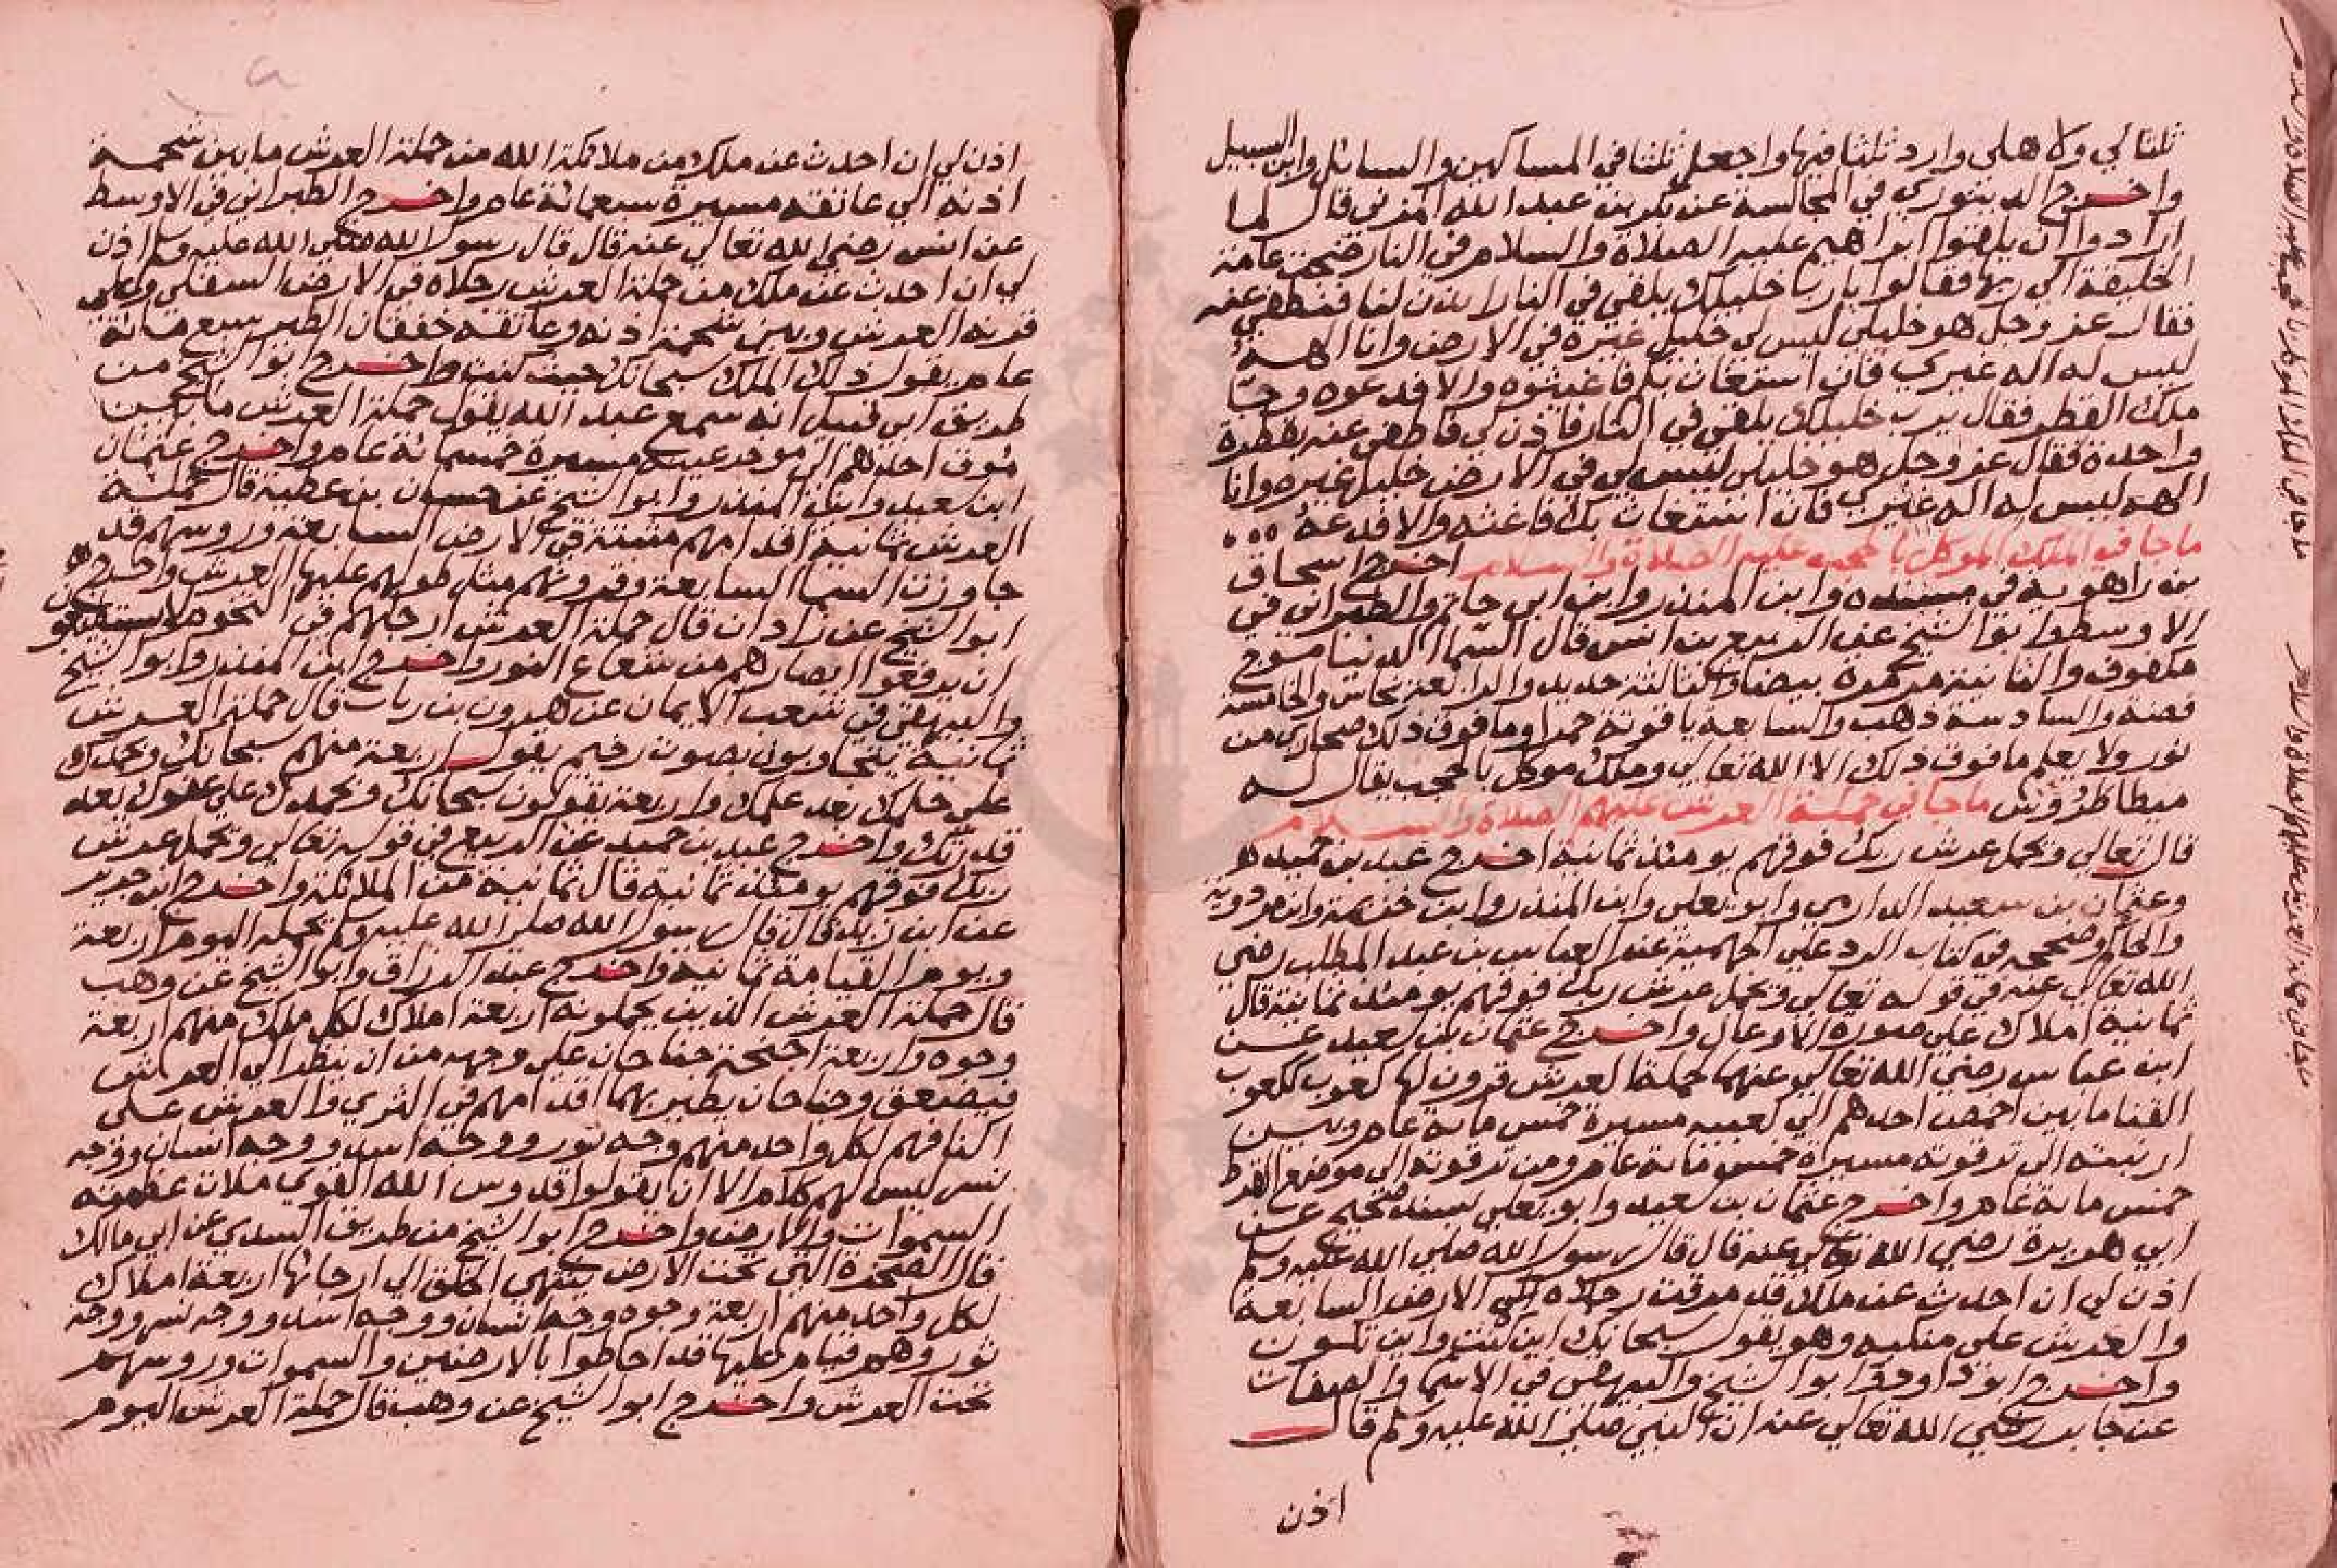 ثلثا لي ولاهلي وارد ثلثا فيها واجعل ثلثا في المساكين والسائل وابن السبيل
واخرج الدينوري في المجالسة عن بكر بن عبد الله المزني قال لما
ارادوا ان يلقوا ابراهيم عليه الصلاة والسلام في النار ضجت عامة
الخليقة الي ربها فقالوا يا ربنا خليلك يلقي في النار ايذن لنا فنطفي عنه
فقال عز وجل هو خليلي ليس لي خليل غيره في الارض وانا الهه
ليس له اله غيري فان استغاث بكم فاغيثوه والا فدعوه وجا
ملك القطر فقال يرب خليلك يلقي في النار فاذن لي فاطفي عنه بقطرة
واحدة فقال عز وجل هو خليلي ليس لي في الارض خليل غيره وانا
الهه ليس له اله غيري فان استغاث بك فاغثه والا فدعه
ما جا في الملك الموكل بالحجب عليه الصلاة والسلام اخرج اسحاق
بن راهوية في مسنده وابن المنذر وابن ابي حاتم والطبراني في
الاوسط وابو الشيخ عن الربيع بن انس قال السما الدنيا موج
مكفوف والثانية مرمرة بيضا والثالثة حديد والرابعة نحاس والخامسة
فضة والسادسة ذهب والسابعة ياقوتة حمرا وما فوق ذلك صحاري من
نور ولا يعلم ما فوق ذلك الا الله تعالي وملك موكل بالحجب يقال له
ميطاطروش ما جا في حملة العرش عليهم الصلاة والسلام
قال تعالي ويحمل عرش ربك فوقهم يومئذ ثمانية اخرج عبد بن حميد
وعثمان بن سعيد الدارمي وابو يعلي وابن المنذر وابن خزيمة وابن مردوية
والحاكم وصححه في كتاب الرد علي الجهمية عن العباس بن عبد المطلب رضي
الله تعالي عنه في قوله تعالي ويحمل عرش ربك فوقهم يومئذ ثمانية قال
ثمانية املاك علي صورة الاوعال واخرج عثمان بن سعيد عن
ابن عباس رضي الله تعالي عنهما حملة العرش قرون لها كعوب ككعوب
القنا ما بين اخمص احدهم الي كعبيه مسيرة خمس ماية عام وبين
ارنبته الي ترقوته مسيرة خمس ماية عام ومن ترقوته الي موضع القرط
خمس ماية عام واخرج عثمان بن سعيد وابو يعلي بسند صحيح عن
ابي هريرة رضي الله تعالي عنه قال قال رسول الله صلي الله عليه وسلم
اذن لي ان احدث عن ملك قد مرقت رجلاه الارض السابعة
والعرش علي منكبه وهو يقول سبحانك اين كنت واين تكون
واخرج ابو داوود وابو الشيخ والبيهقي في الاسما والصفات
عن جابر رضي الله تعالي عنه ان النبي صلي الله عليه وسلم قال
اذن
اذن لي ان احدث عن ملك من ملائكة الله من حملة العرش ما بين شحمة
اذنه الي عاتقه مسيرة سبعمائة عام واخرج الطبراني في الاوسط
عن انس رضي الله تعالي عنه قال قال رسول الله صلي الله عليه وسلم اذن
لي ان احدث عن ملك من حملة العرش رجلاه في الارض السفلي وعلي
قرنه العرش وبين شحمة اذنه وعاتقه خفقان الطير سبع مائة
عام يقول ذلك الملك سبحانك حيث كنت واخرج ابو الشيخ من
طريق ابي قبيل انه سمع عبد الله يقول حملة العرش ما بين
موق احدهم الي موخر عينيه مسيرة خمسمائة عام واخرج عثمان
ابن سعيد وابن المنذر وابو الشيخ عن حسان بن عطية قال حملة
العرش ثمانية اقدامهم مثبتة في الارض السابعة وروسهم قد
جاوزت السما السابعة وقرونهم مثل طولهم عليها العرش واخرج
ابو الشيخ عن زادان قال حملة العرش ارجلهم في التخوم لا يستطيعون
ان يرفعوا ابصارهم من شعاع النور واخرج ابن المنذر وابو الشيخ
والبيهقي في شعب الايمان عن هرون بن رياب قال حملة العرش
ثمانية يتجاوبون بصوت رخيم يقول اربعة منهم سبحانك وبحمدك
علي حلمك بعد علمك واربعة يقولون سبحانك وبحمدك علي عفوك بعد
قدرتك واخرج عبد بن حميد عن الربيع في قوله تعالي ويحمل عرش
ربك فوقهم يومئذ ثمانية قال ثمانية من الملائكة واخرج ابن جرير
عن ابن زيد قال قال رسول الله صلي الله عليه وسلم يحمله اليوم اربعة
ويوم القيامة ثمانية واخرج عبد الرزاق وابو الشيخ عن وهب
قال حملة العرش الذين يحملونه اربعة املاك لكل ملك منهم اربعة
وجوه واربعة اجنحة جناحان علي وجهه من ان ينظر الي العرش
فيصعق وجناحان يطير بهما اقدامهم في الثري والعرش علي
اكتافهم لكل واحد منهم وجه ثور ووجه اسد ووجه انسان ووجه
نسر ليس لهم كلام الا ان يقولوا قدوس الله القوي ملات عظمته
السموات والارض واخرج ابو الشيخ من طريق السدي عن ابي مالك
قال الصخرة التي تحت الارض ينتهي الخلق الي ارجائها اربعة املاك
لكل واحد منهم اربعة وجوه وجه انسان ووجه اسد ووجه نسر ووجه
ثور وهم قيام عليها قد احاطوا بالارضين والسموات وروسهم
تحت العرش واخرج ابو الشيخ عن وهب قال حملة العرش اليوم